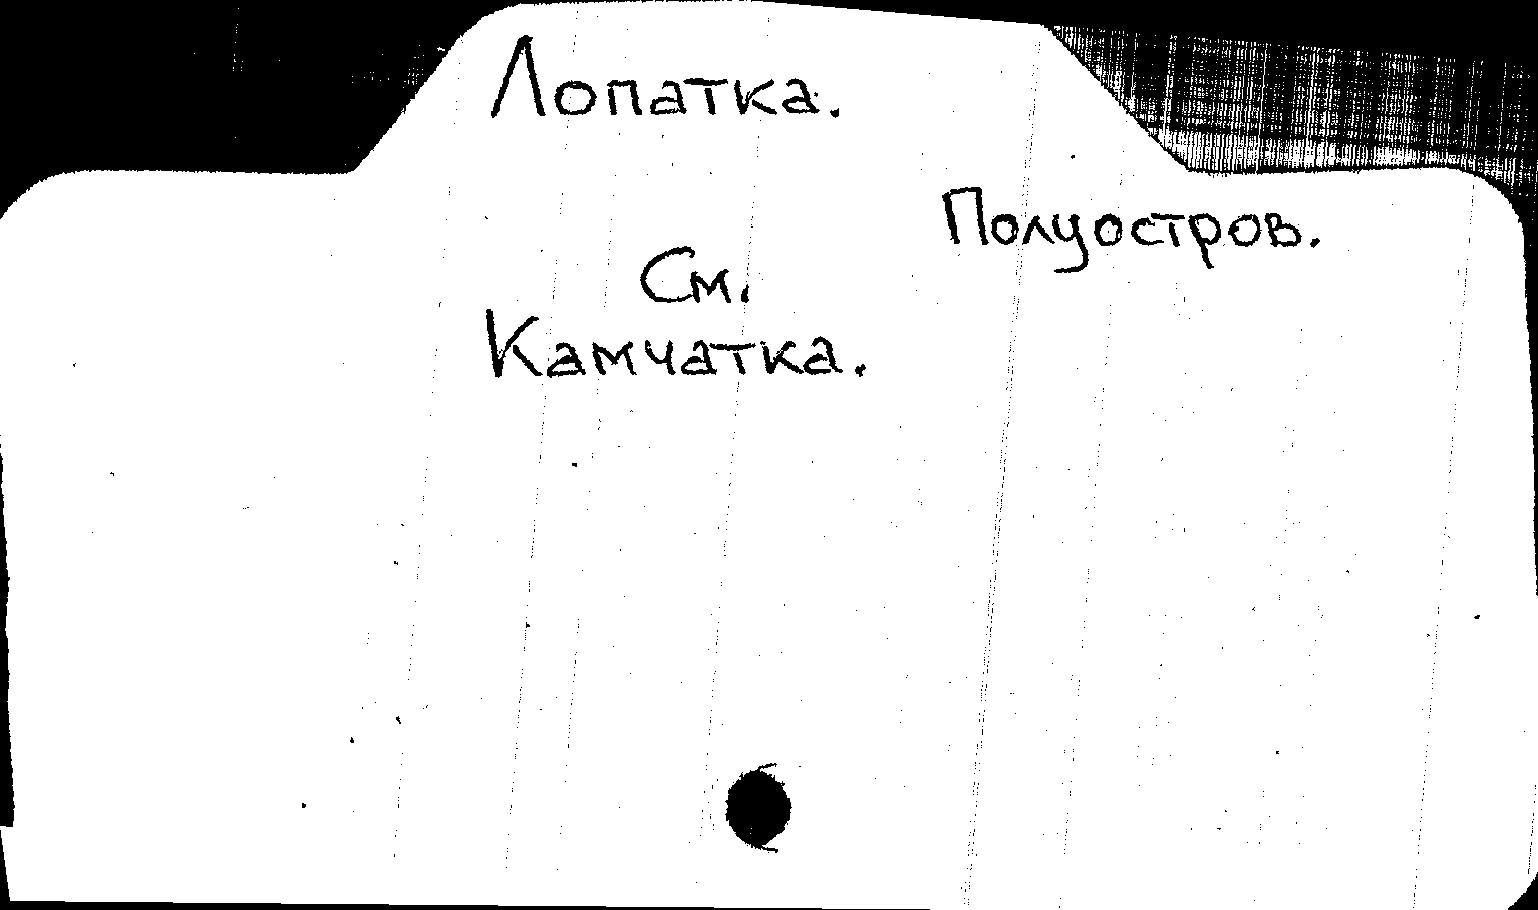 Лопатка.
Полуостров.
См.
Камчатка.